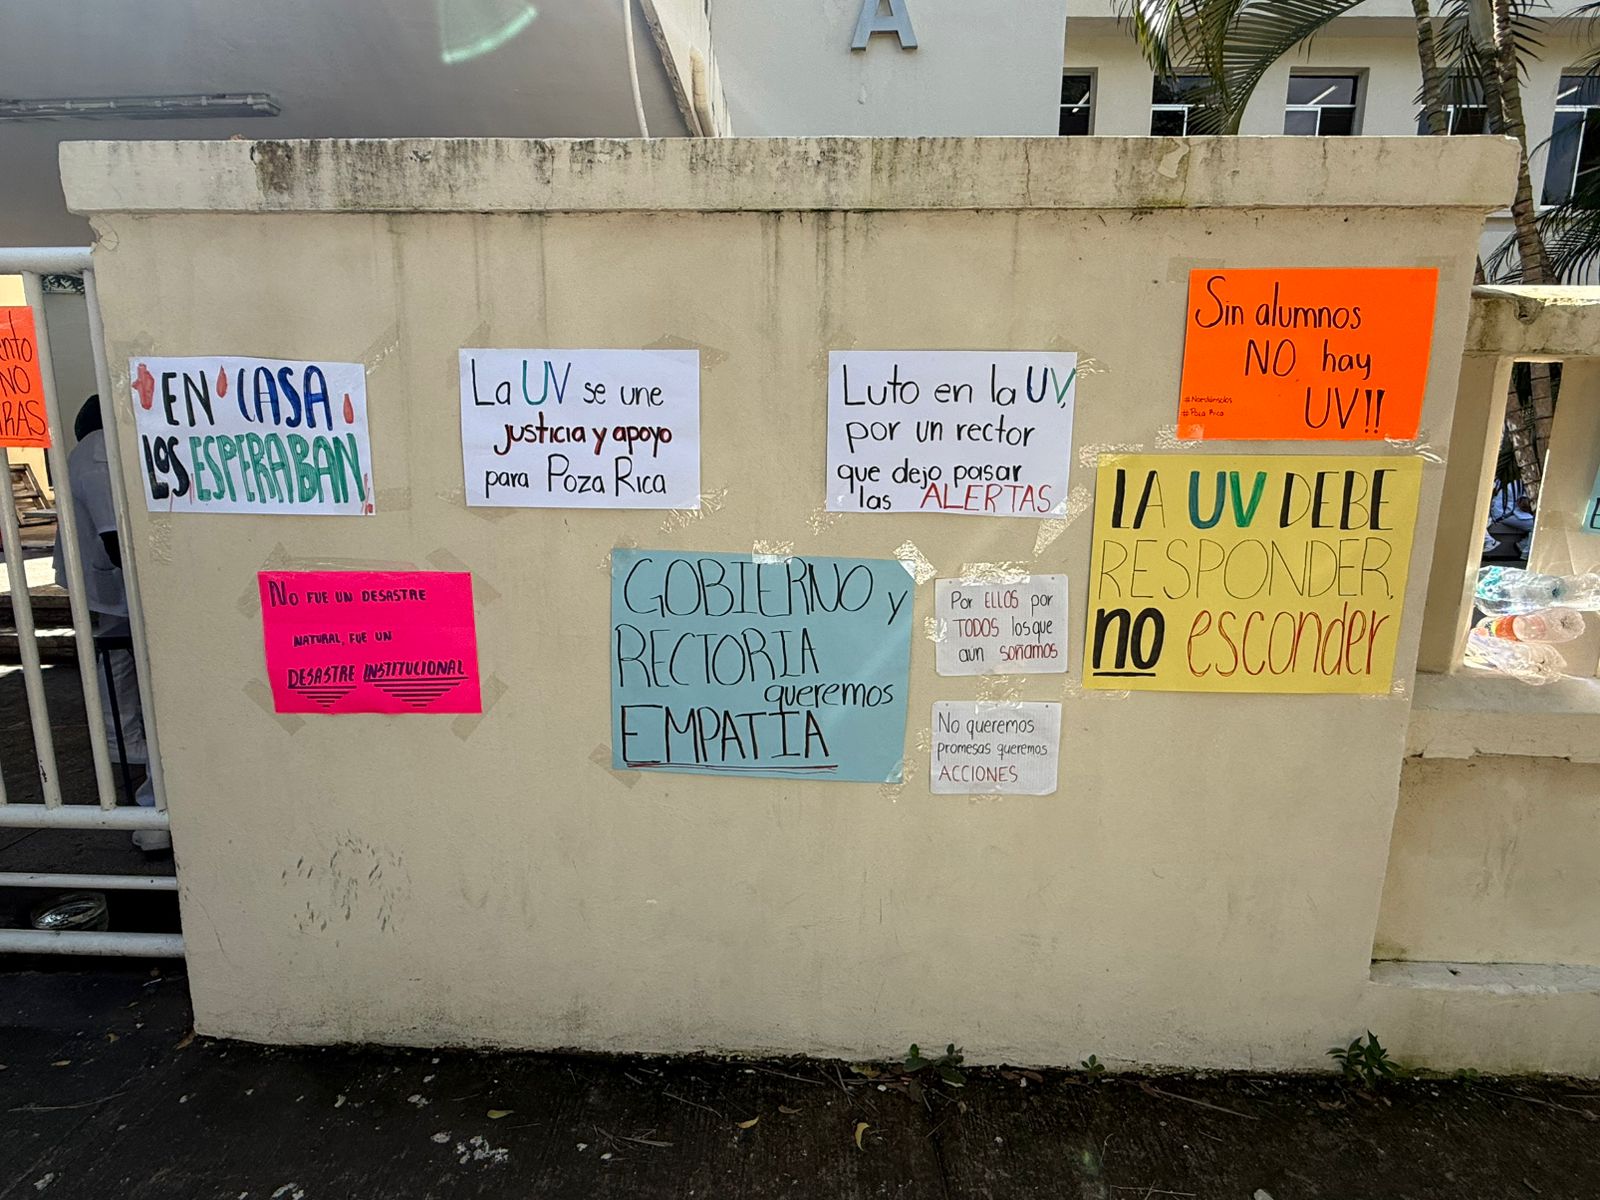 A
ento
NO
RAS
EN CASA
LOS ESPERABAN
La UV se une
justicia y apoyo
para Poza Rica
Luto en la UV,
por un rector
que dejo pasar
las ALERTAS
Sin alumnos
NO hay
UV!!
# Poza Rica
NO FUE UN DESASTRE
NATURAL, FUE UN
DESASTRE INSTITUCIONAL
GOBIERNO y
RECTORIA
queremos
EMPATIA
Por ELLOS por
TODOS los que
aun soñamos
No queremos
promesas queremos
ACCIONES
LA UV DEBE
RESPONDER,
no esconder